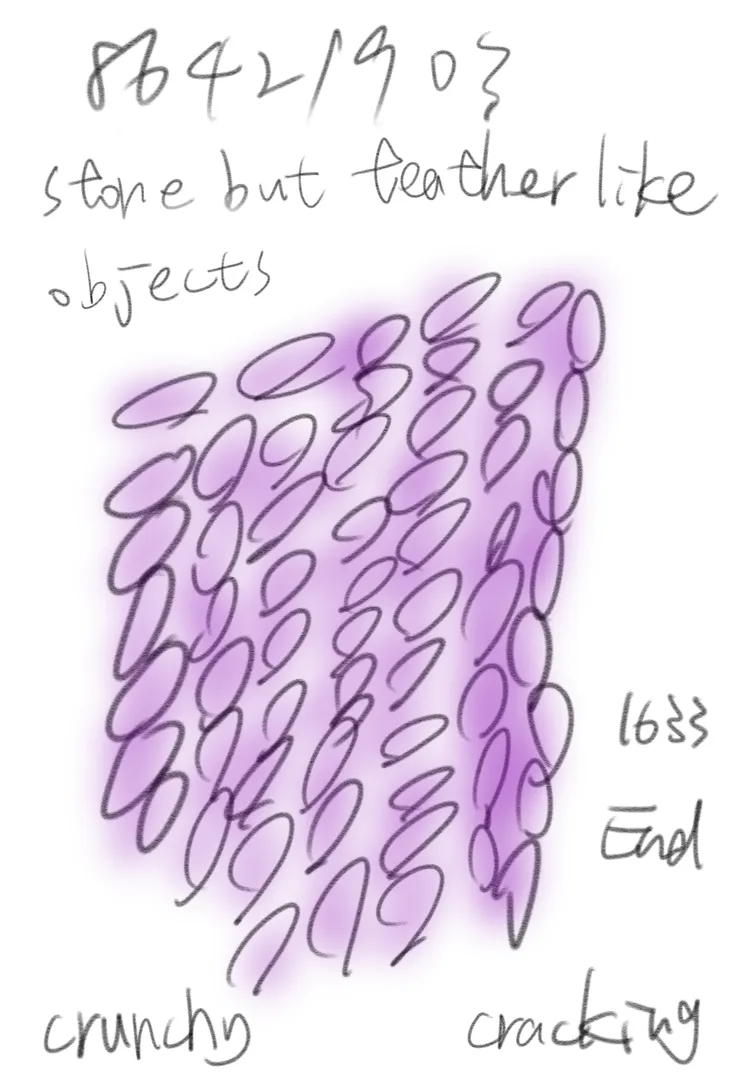 86421903
stone but feather like
objects
1633
End
crunchy
cracking